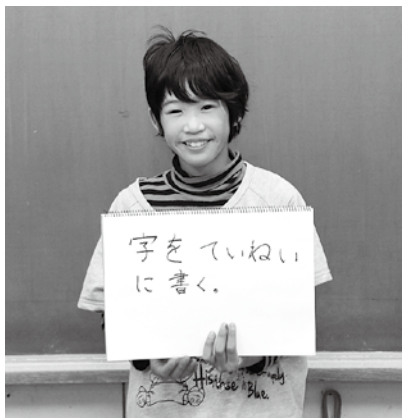 字をていねい
に書く。
Blue.